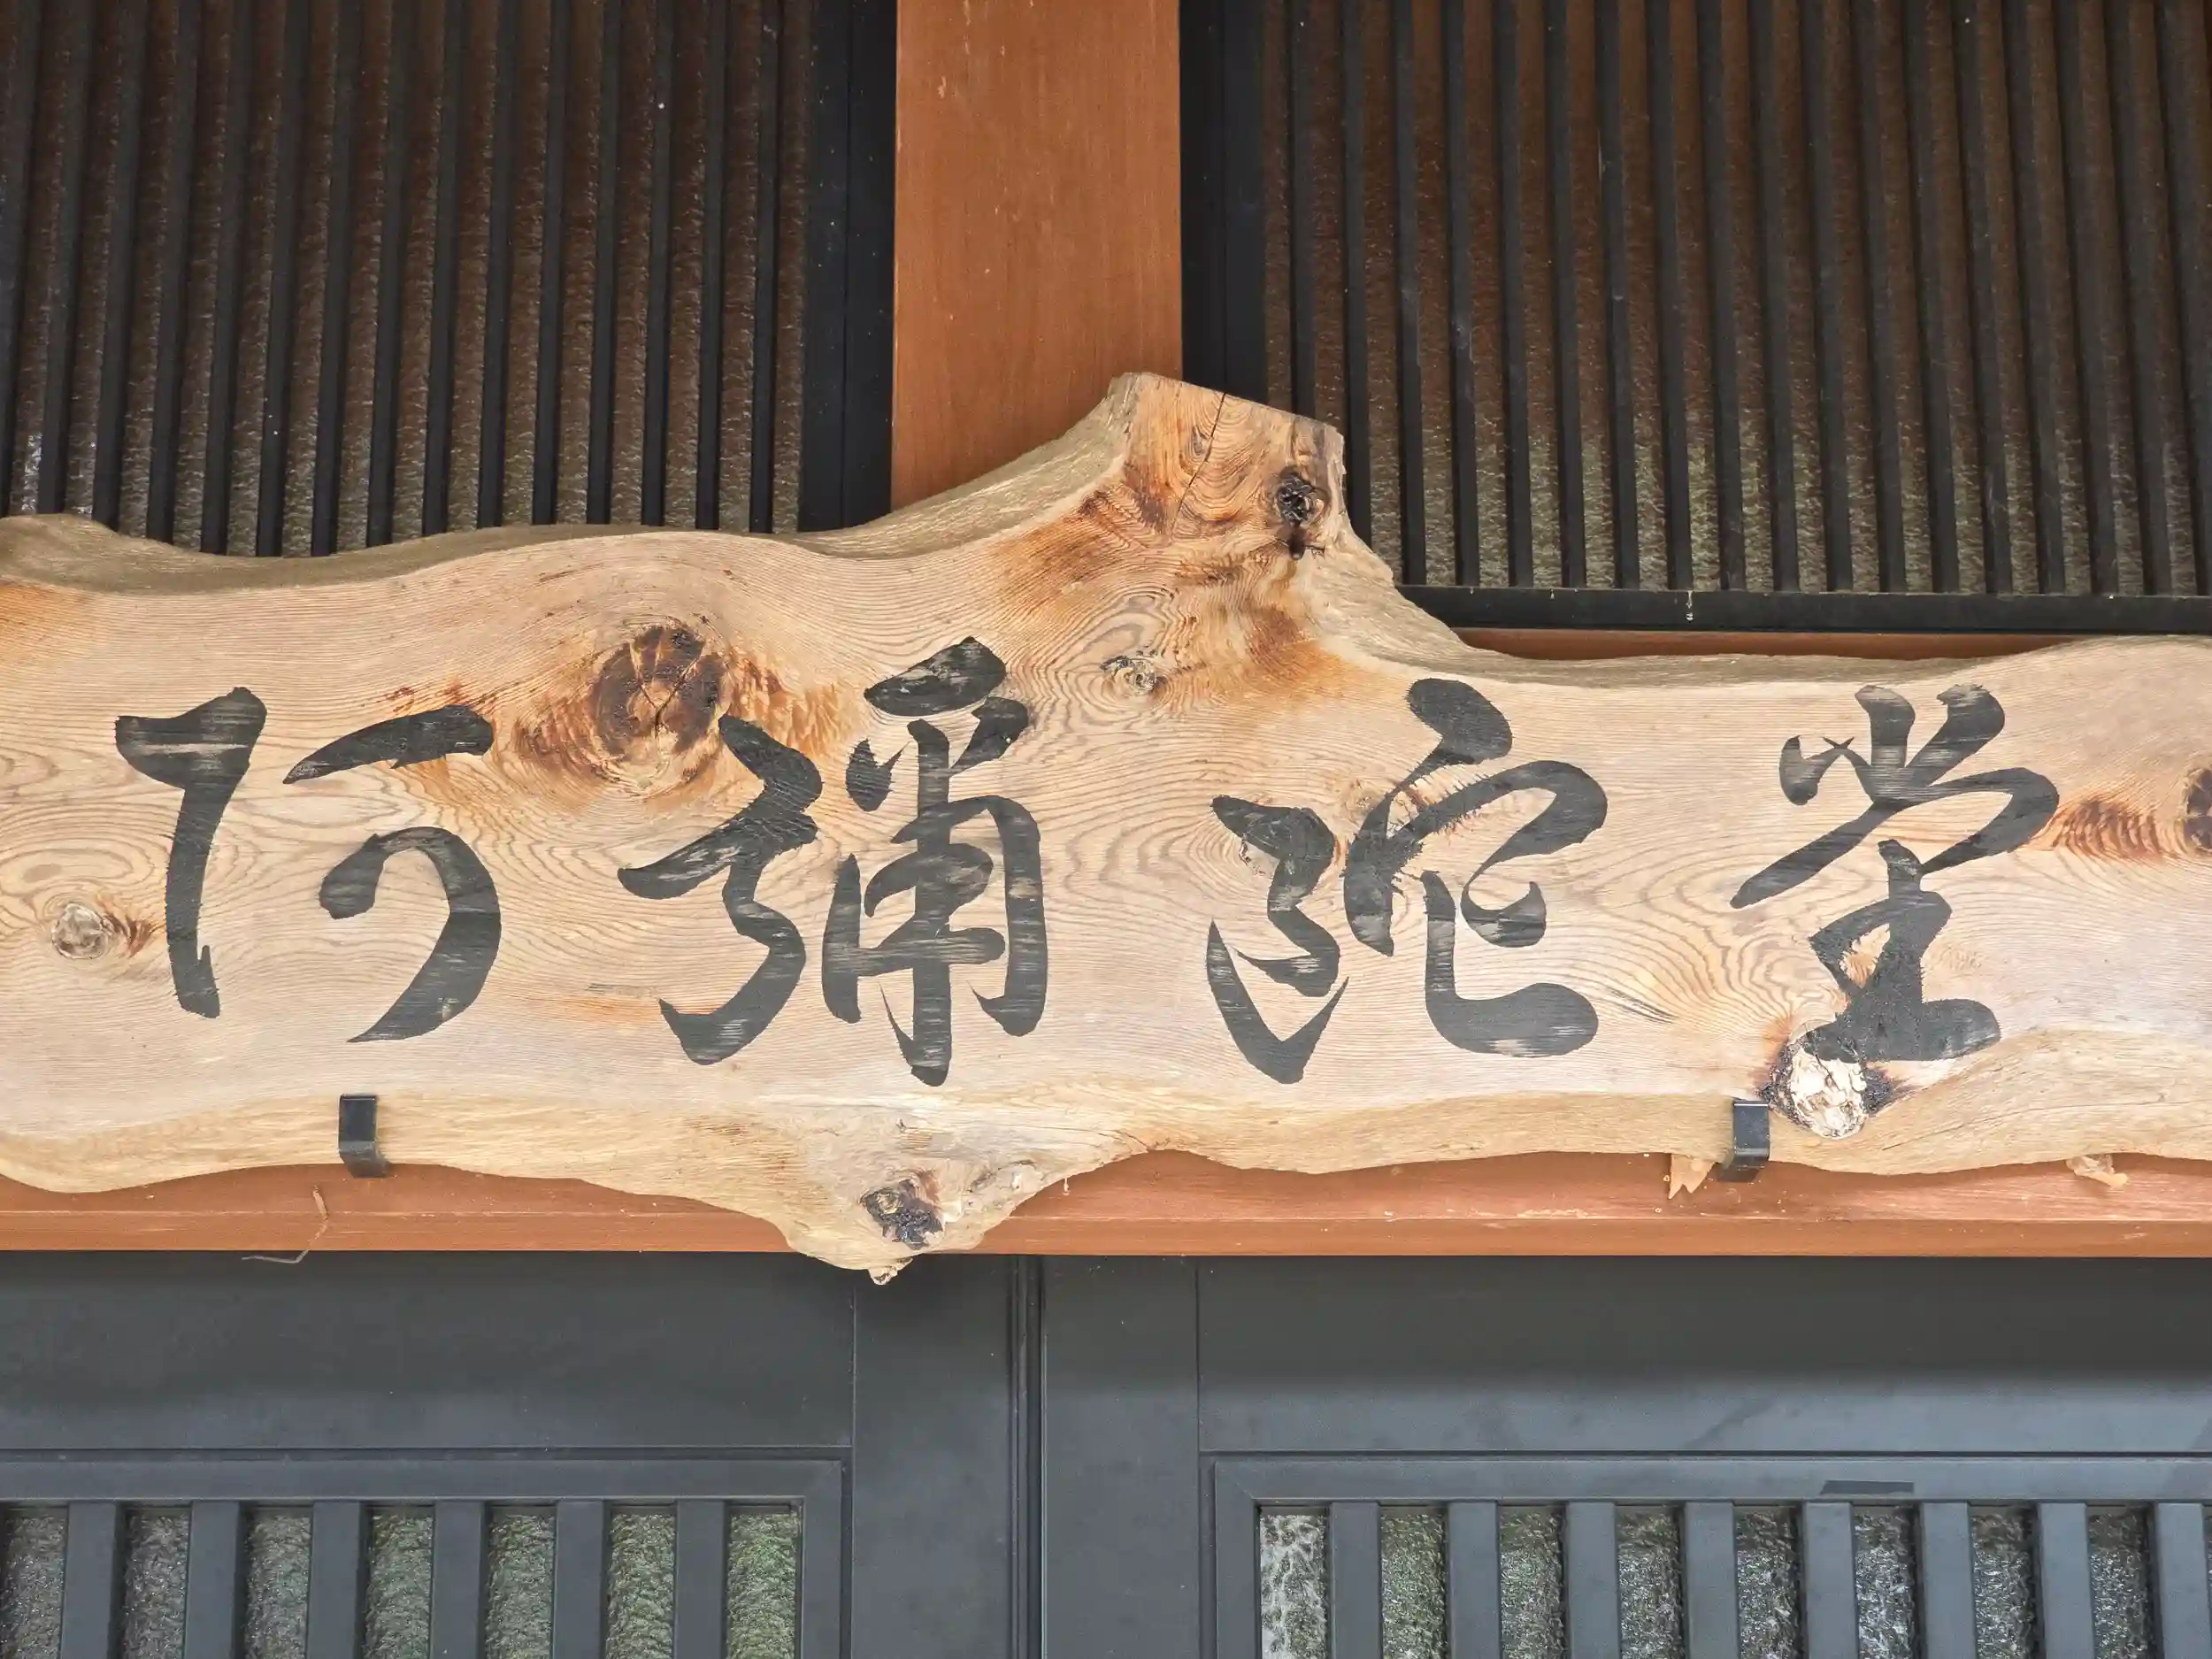 阿彌陀堂